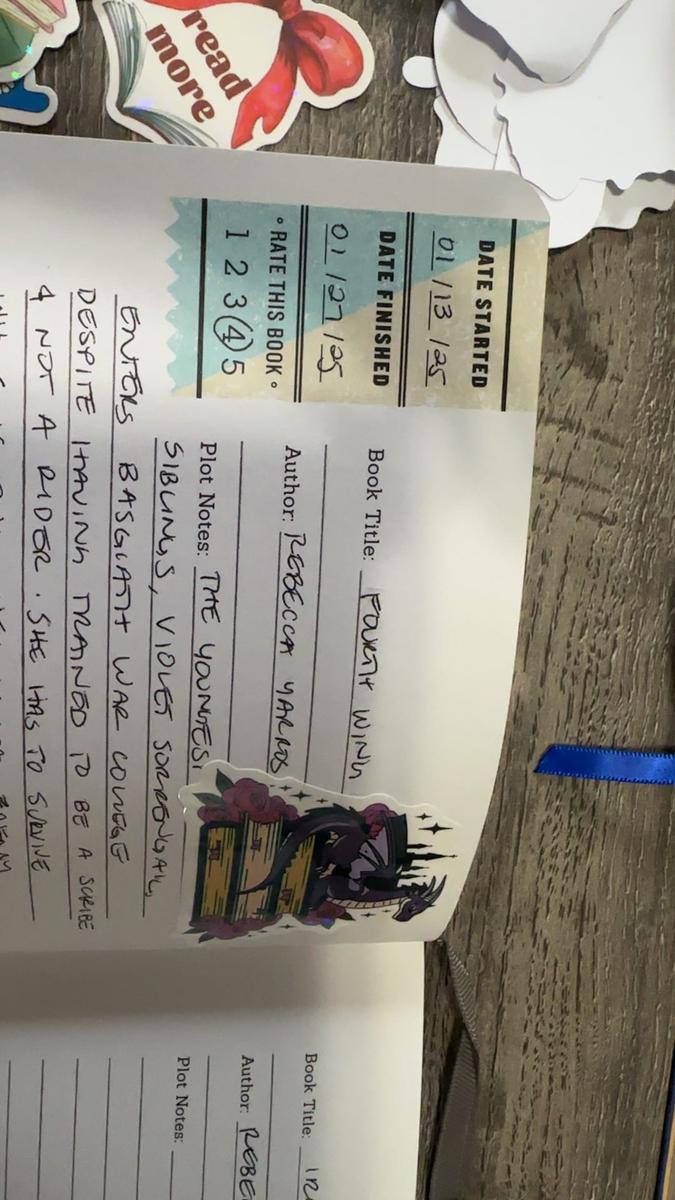 read
more
DATE STARTED
01/13/25
DATE FINISHED
01/27/25
° RATE THIS BOOK °
1 2 3 4 5
Book Title: FOURTH WING
Author: REBECCA YARROS
Plot Notes: THE YOUNGEST
SIBLINGS, VIOLET SORRENGAIL,
ENTERS BASGIATH WAR COLLEGE
DESPITE HAVING TRAINED TO BE A SCRIBE
& NOT A RIDER. SHE HAS TO SURVIVE
Book Title:
Author: REBE
Plot Notes: